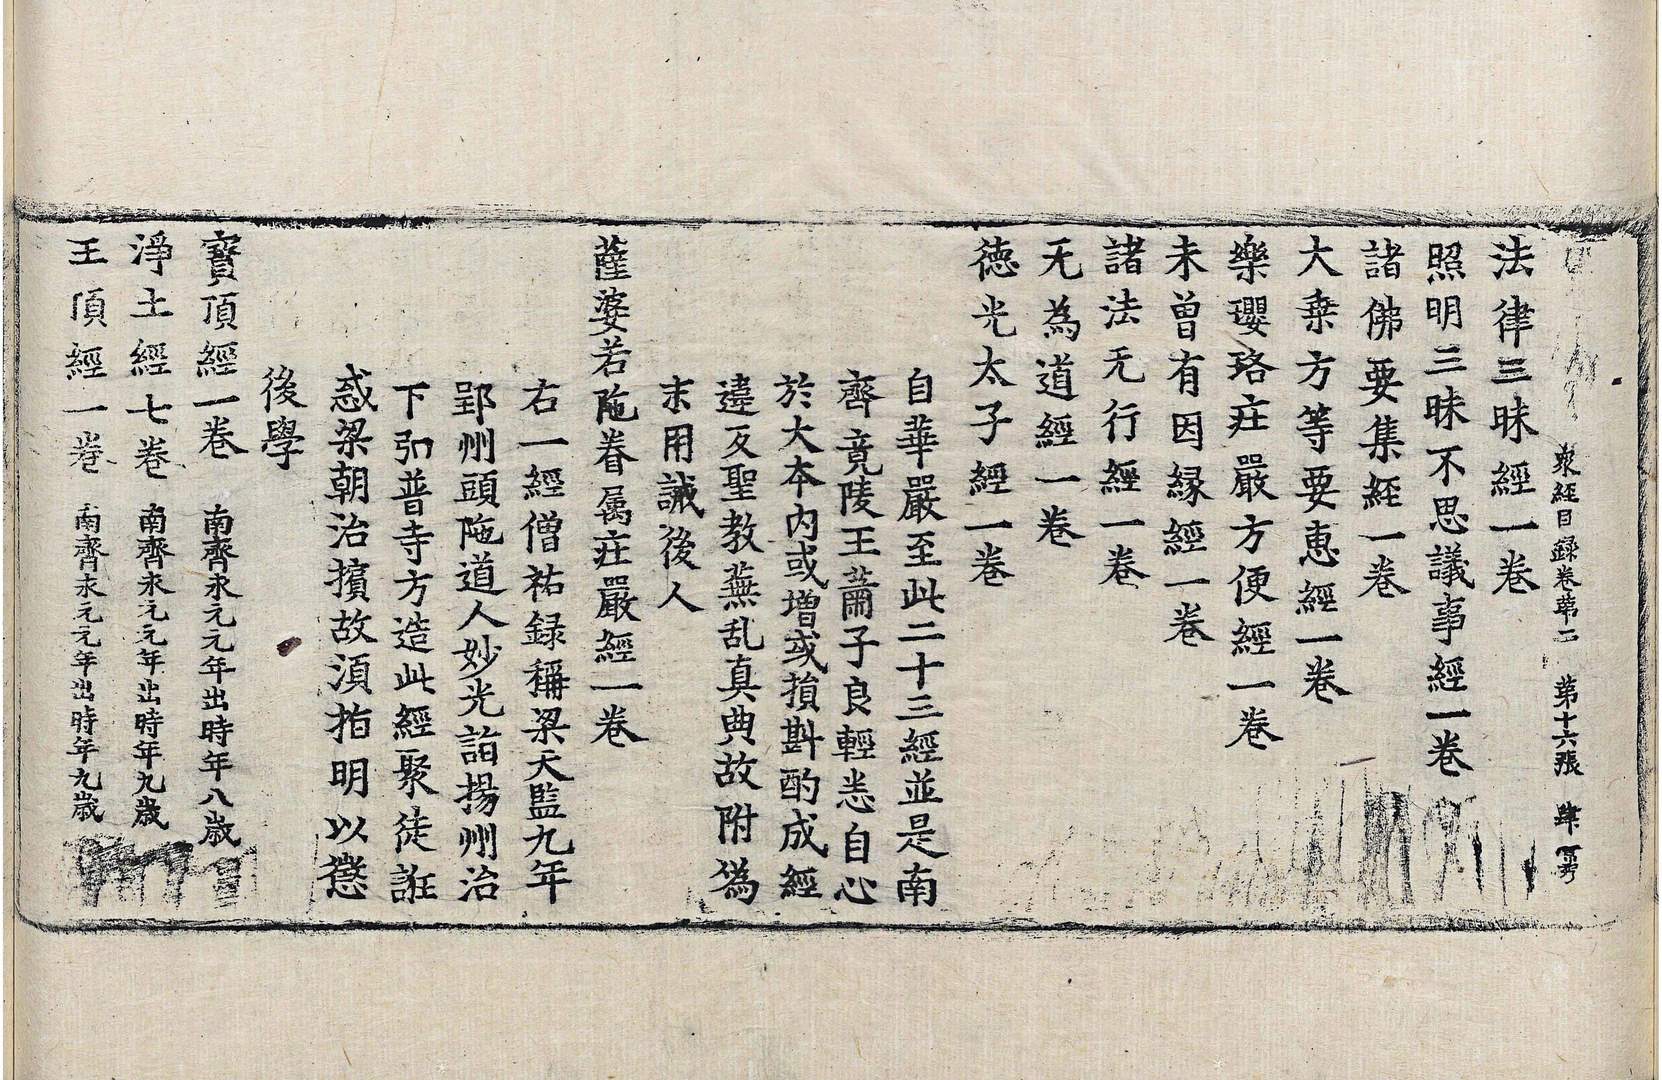 衆経目録卷苐二 苐十六張 肆
法律三昧經一卷
照明三昧不思議事經一卷
諸佛要集經一卷
大乗方等要惠經一卷
樂瓔珞莊嚴方便經一卷
未曽有因縁經一卷
諸法无行經一卷
无為道經一卷
徳光太子經一卷
自華嚴至此二十三經並是南
齊竟陵王蕭子良輕恣自心
於大本内或増或損斟酌成經
違反聖教蕪乱真典故附偽
末用誡後人
薩婆若陁眷属莊嚴經一卷
右一經僧祐録稱梁天監九年
郢州頭陁道人妙光詣揚州治
下弘普寺方造此經聚徒誑
惑梁朝治擯故湏指明以懲
後學
寳頂經一卷 南齊永元元年出時年八歳
淨土經七卷 南齊永元元年出時年九歳
王頂經一卷 南齊永元元年出時年九歳